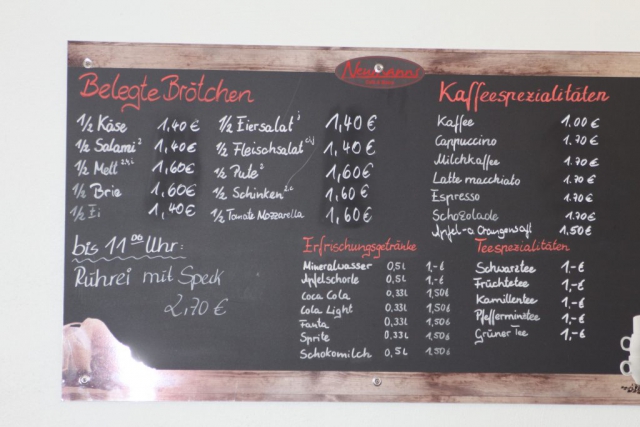 Neumanns
Belegte Brötchen
½ Käse 1,40 €
½ Salami² 1,40 €
½ Mett 1,60 €
½ Brie 1,60 €
½ Ei 1,40 €
½ Eiersalat 1,40 €
½ Fleischsalat 1,40 €
½ Pute² 1,60 €
½ Schinken 1,60 €
½ Tomate Mozzarella 1,60 €
bis 11⁰⁰ Uhr:
Rührei mit Speck
2,70 €
Kaffeespezialitäten
Kaffee 1.00 €
Cappuccino 1.70 €
Milchkaffee 1.70 €
Latte macchiato 1.70 €
Espresso 1.70 €
Schokolade 1.70 €
Apfel-o. Orangensaft 1.50 €
Erfrischungsgetränke
Mineralwasser 0,5l 1,-€
Apfelschorle 0,5l 1,-€
Coca Cola 0,33l 1,50€
Cola Light 0,33l 1,50€
Fanta 0,33l 1,50€
Sprite 0,33l 1,50€
Schokomilch 0,5l 1.50€
Teespezialitäten
Schwarztee 1,-€
Früchtetee 1,-€
Kamillentee 1,-€
Pfefferminztee 1,-€
Grüner Tee 1,-€